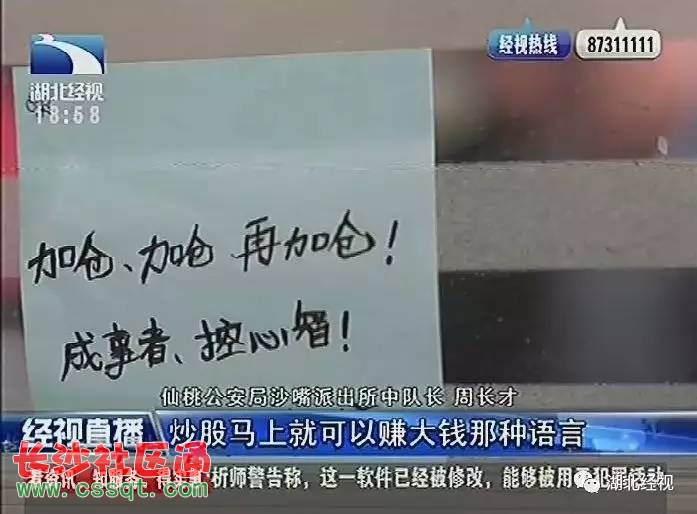 经视热线 87311111
湖北经视
18:58
加仓、加仓 再加仓!
成事者、控心智!
仙桃公安局沙嘴派出所中队长 周长才
经视直播
炒股马上就可以赚大钱那种语言
长沙社区通
析师警告称，这一软件已经被修改，能够被用
犯罪活动
www.cssqt.com
湖北经视